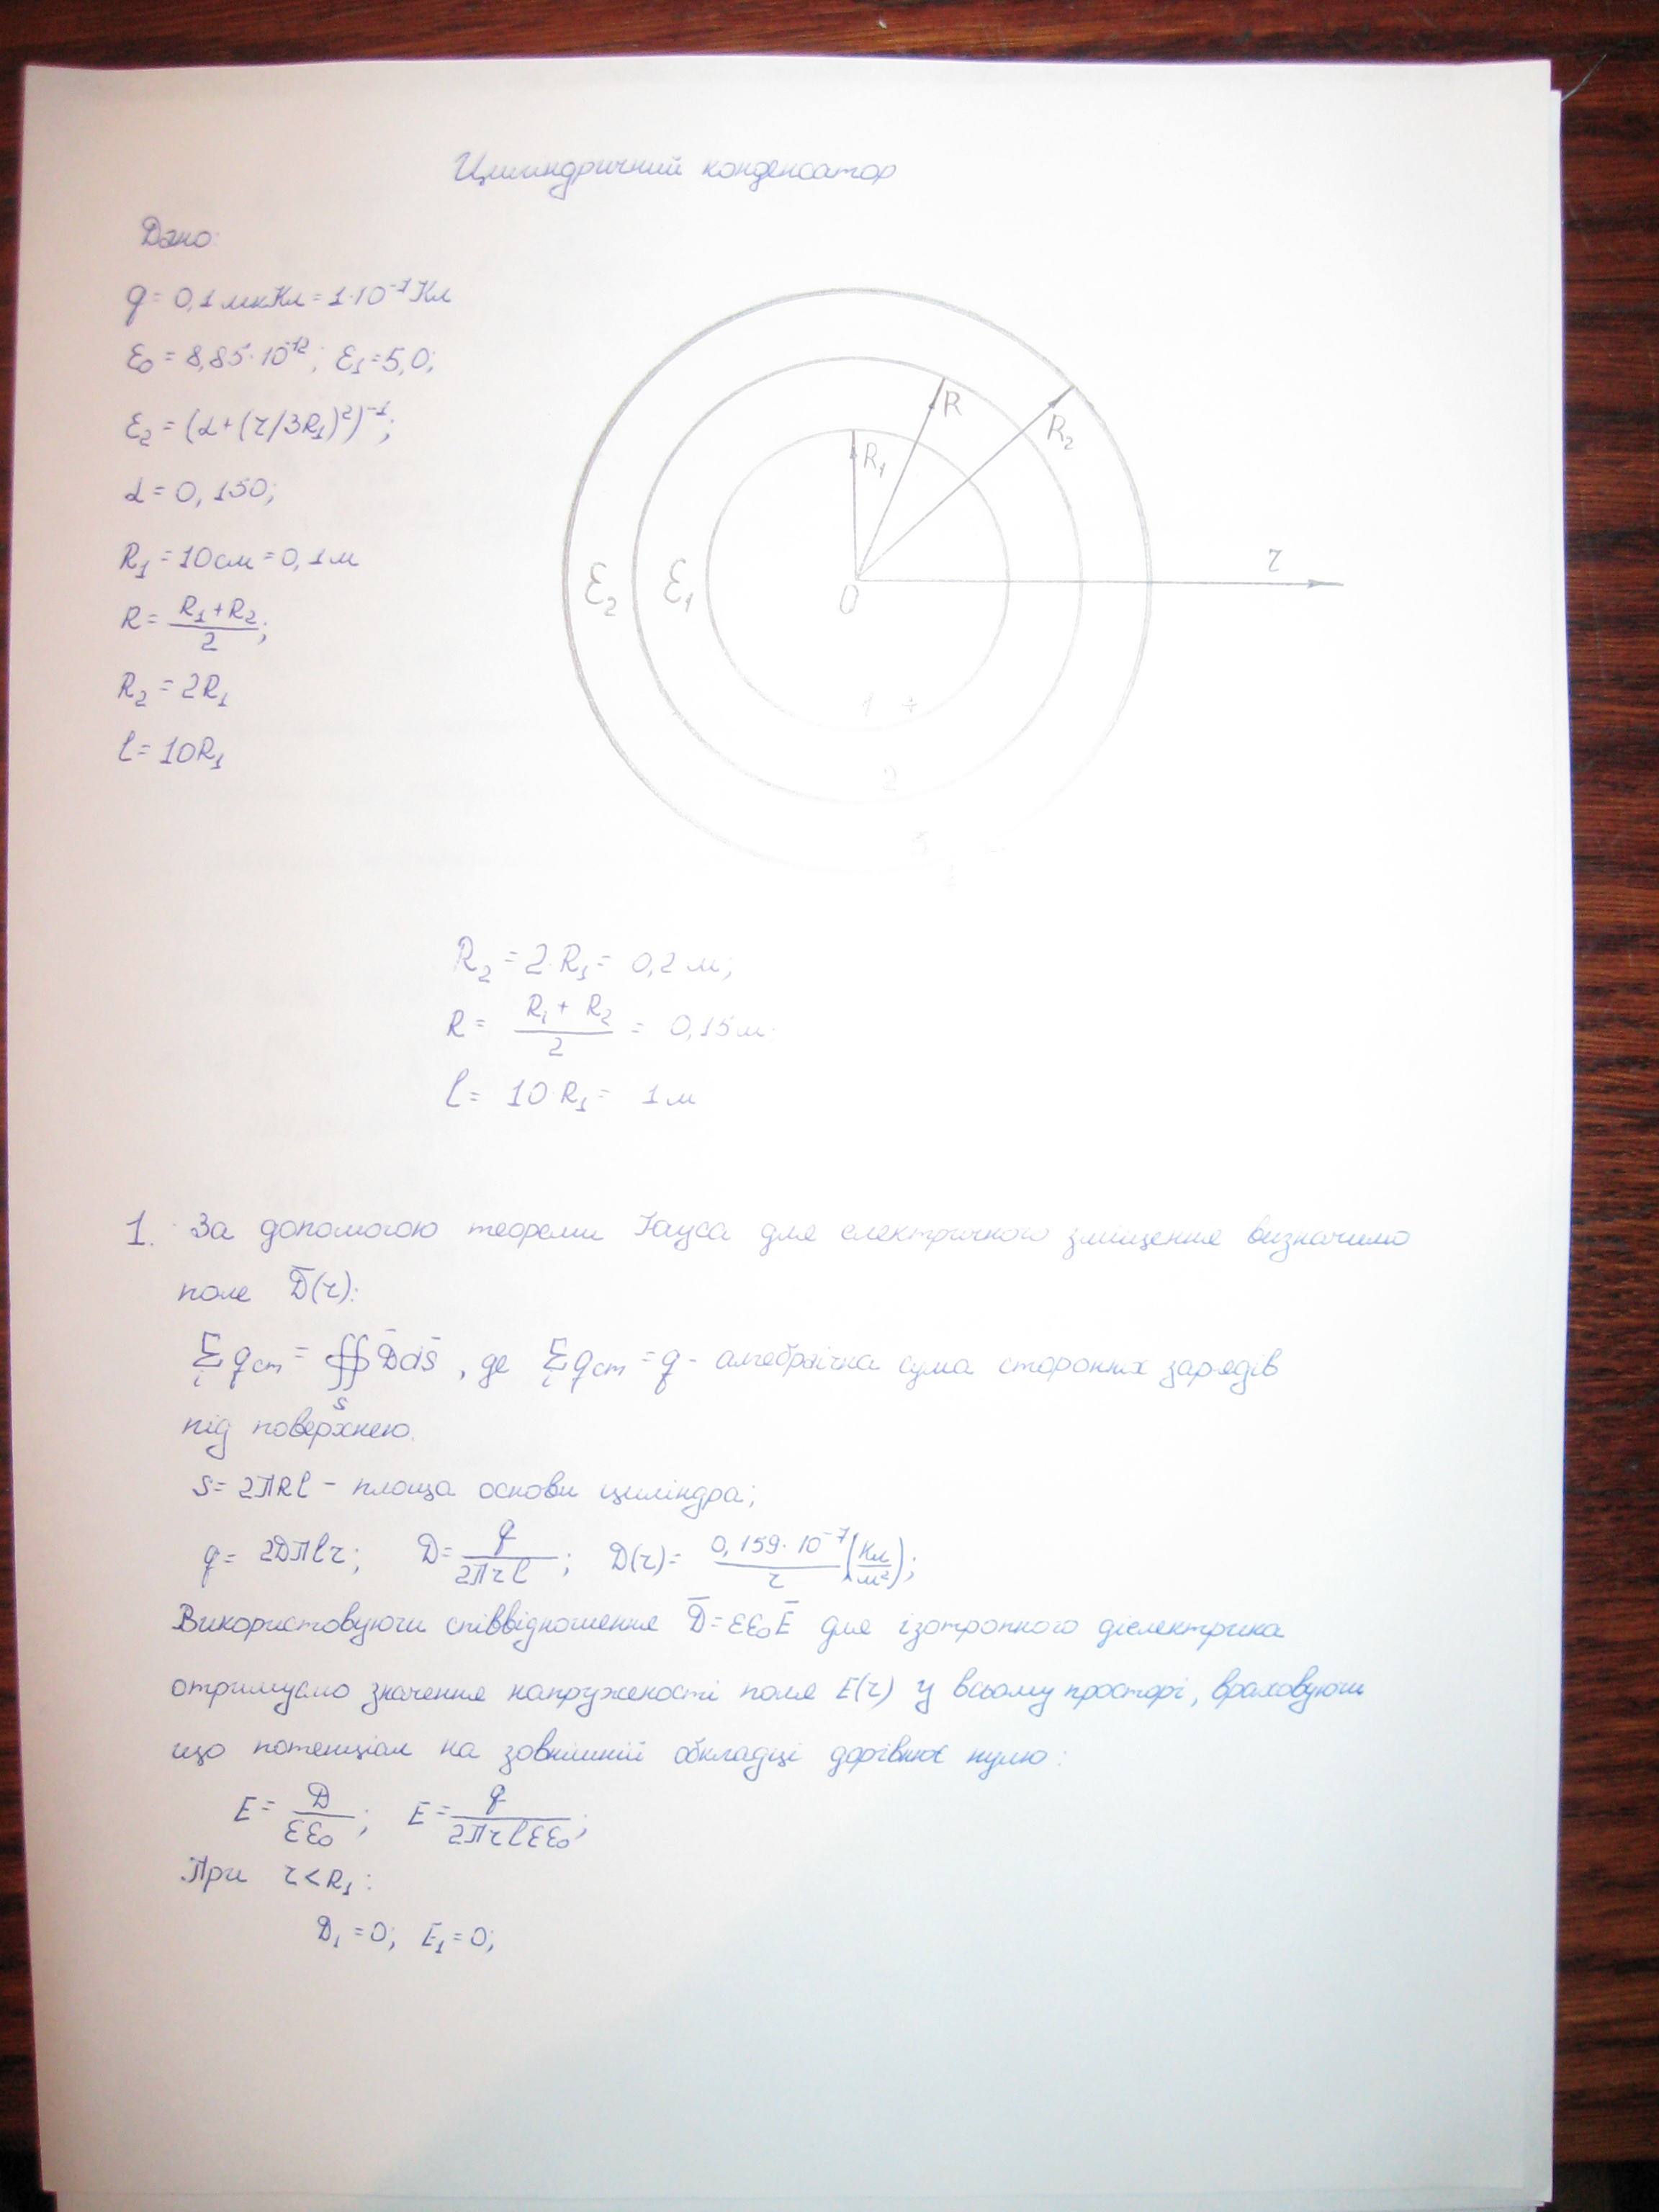 Циліндричний конденсатор
Дано:
q = 0,1 мкКл = 1·10⁻⁷ Кл
ε₀ = 8,85·10⁻¹²; ε₁ = 5,0;
ε₂ = (α + (r/3R₁)²)⁻¹;
α = 0,150;
R₁ = 10 см = 0,1 м
R = (R₁ + R₂)/2;
R₂ = 2R₁
l = 10R₁
R
R₂
R₁
r
ε₂ ε₁ 0
1 +
2
3
R₂ = 2·R₁ = 0,2 м;
R = (R₁ + R₂)/2 = 0,15 м
l = 10·R₁ = 1 м
1. За допомогою теореми Гауса для електричного зміщення визначимо
поле D̄(r):
∑ᵢ qст = ∯ₛ D̄dS̄, де ∑ᵢ qст = q - алгебраїчна сума сторонніх зарядів
під поверхнею.
S = 2πRl – площа основи циліндра;
q = 2Dπlr; D = q/(2πrl); D(r) = (0,159·10⁻⁷)/r (Кл/м²);
Використовуючи співвідношення D̄ = εε₀Ē для ізотропного діелектрика
отримуємо значення напруженості поля E(r) у всьому просторі, враховуючи
що потенціал на зовнішній обкладці дорівнює нулю:
E = D/(εε₀); E = q/(2πrlεε₀);
При r < R₁:
D₁ = 0; E₁ = 0;